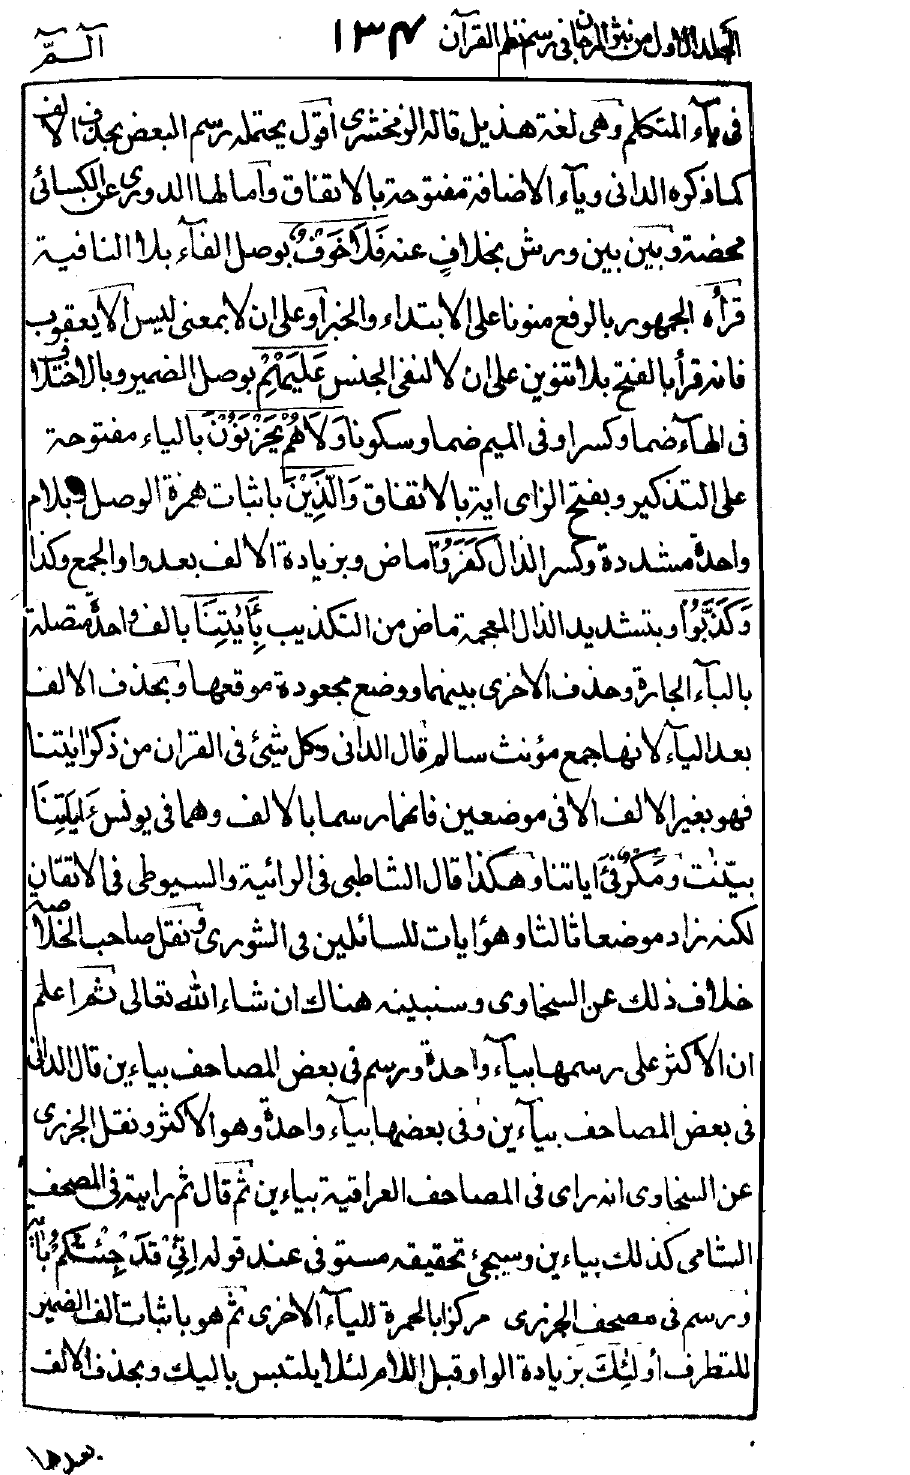 المجلد الاول من نثر المرجان فى رسم نظم القرآن ۱۳۴ آلــمّ
فى يآء المتكلم وهى لغة هذيل قاله الزمخشرى اقول يحتمله رسم البعض بحذف الالف
كما ذكره الدانى ويآء الاضافة مفتوحة بالاتفاق وامالها الدورى عن الكسائى
محضة وبين بين ورش بخلافٍ عنه فَلَا خَوْفٌ بوصل الفآء بلا النافية
قرأه الجمهور بالرفع منونا على الابتداء والخبر او على ان لا بمعنى ليس الا يعقوب
فانه قرأ بالفتح بلا تنوين على ان لا لنفى الجنس عَلَيْهِمْ بوصل الضمير وبالاختلاف
فى الهآء ضما وكسرا وفى الميم ضما وسكونا وَلَا هُمْ يَحْزَنُوْنَ بالياء مفتوحة
على التذكير وبفتح الزاى اية بالاتفاق وَالَّذِيْنَ باثبات همزة الوصل وبلام
واحدة مشددة وكسر الذال كَفَرُوْا ماض وبزيادة الالف بعد واو الجمع وكذا
وَكَذَّبُوْا وبتشديد الذال المعجمة ماض من التكذيب بِـَٔايٰتِنَا بالف واحدة متصلة
بالبآء الجارة وحذف الاخرى بينهما ووضع مجعودة موقعها وبحذف الالف
بعد اليآء لانها جمع مؤنث سالم قال الدانى وكل شئ فى القران من ذكر ايٰتنا
فهو بغير الالف الا فى موضعين فانهما رسما بالالف وهما فى يونس ءَايَاتِنَا
بيّنٰت وَمَكْرٌ فِىْٓ ايَاتنا وهكذا قال الشاطبى فى الرائية والسيوطى فى الاتقان
لكنه زاد موضعا ثالثا وهو ايات للسائلين فى الشورى ونقل صاحب الخلاصة
خلاف ذلك عن السخاوى وسنبينه هناك ان شاء الله تعالى ثم اعلم
ان الاكثر على رسمها بيآء واحدة ورسم فى بعض المصاحف بياءين قال الدانى
فى بعض المصاحف بيآءين وفى بعضها بيآء واحدة وهو الاكثر ونقل الجزرى
عن السخاوى انه راى فى المصاحف العراقية بياءين ثم قال ثم رايته فى المصحف
الشامى كذلك بياءين وسيجئ تحقيقه مستوفى عند قوله اِنِّىْ قَدْ جِئْتُكُمْ بِاٰيَةٍ
ورسم فى مصحف الجزرى مركزا بالحمرة لليآء الاخرى ثم هو باثبات الف الضمير
للتطرف أُولٰٓئِكَ بزيادة الواو قبل اللام لئلا يلتبس باليك وبحذف الالف
بعدها